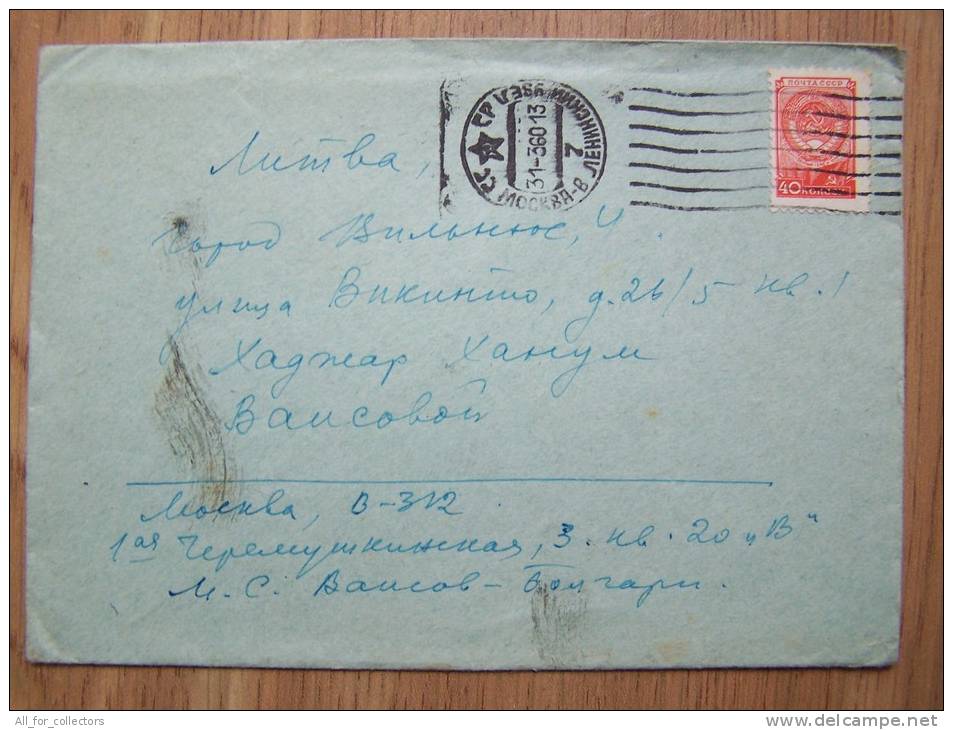 ПОЧТА СССР
40 КОПЕЕК
СССР
31-360 13
МОСКВА-В ЛЕНИНСКИЙ УЗЕЛ
7
Литва,
город Вильнюс, 4.
улица Викинто, д. 2b/5 кв. 1
Хаджар Ханум
Ваисовой
Москва, В-312
1ая Черемушкинская, 3. кв. 20 „В“
М. С. Ваисов-Болгари.
All_for_collectors
www.delcampe.net